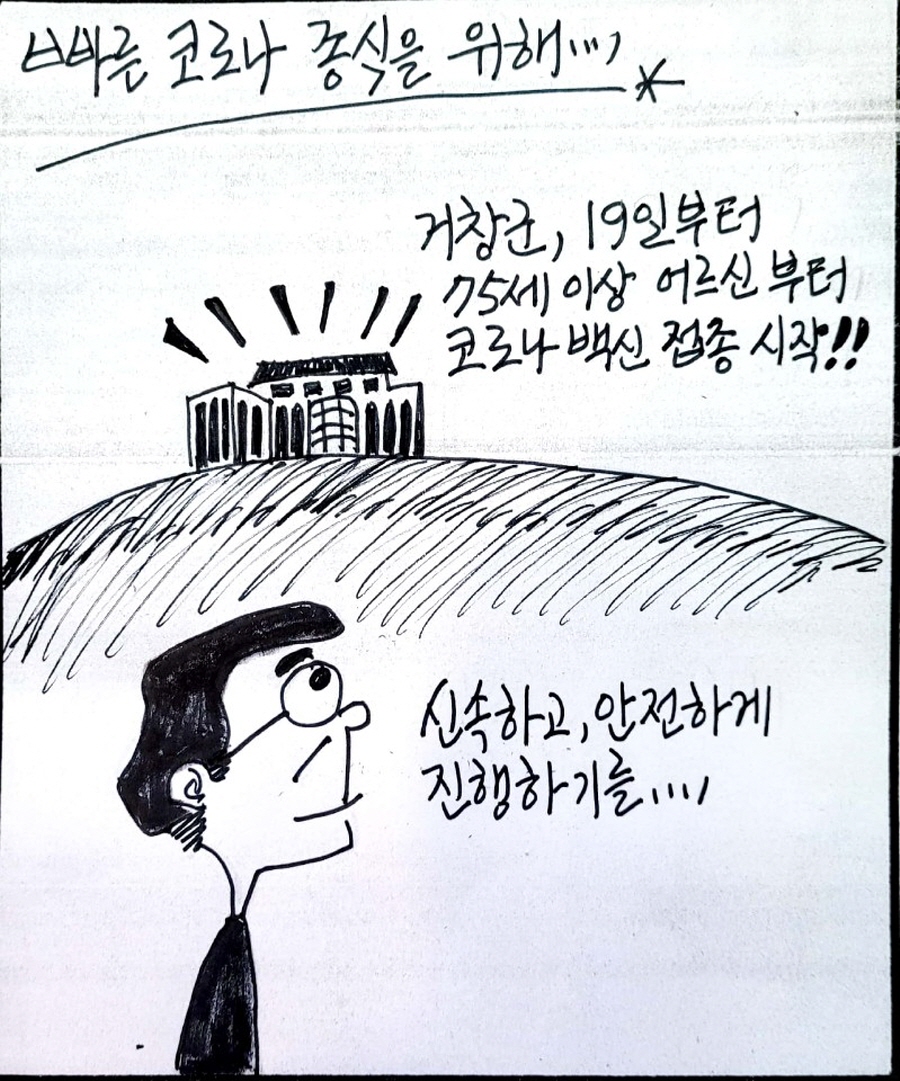 빠른 코로나 종식을 위해...,
거창군, 19일부터
75세 이상 어르신 부터
코로나 백신 접종 시작!!
신속하고, 안전하게
진행하기를....,